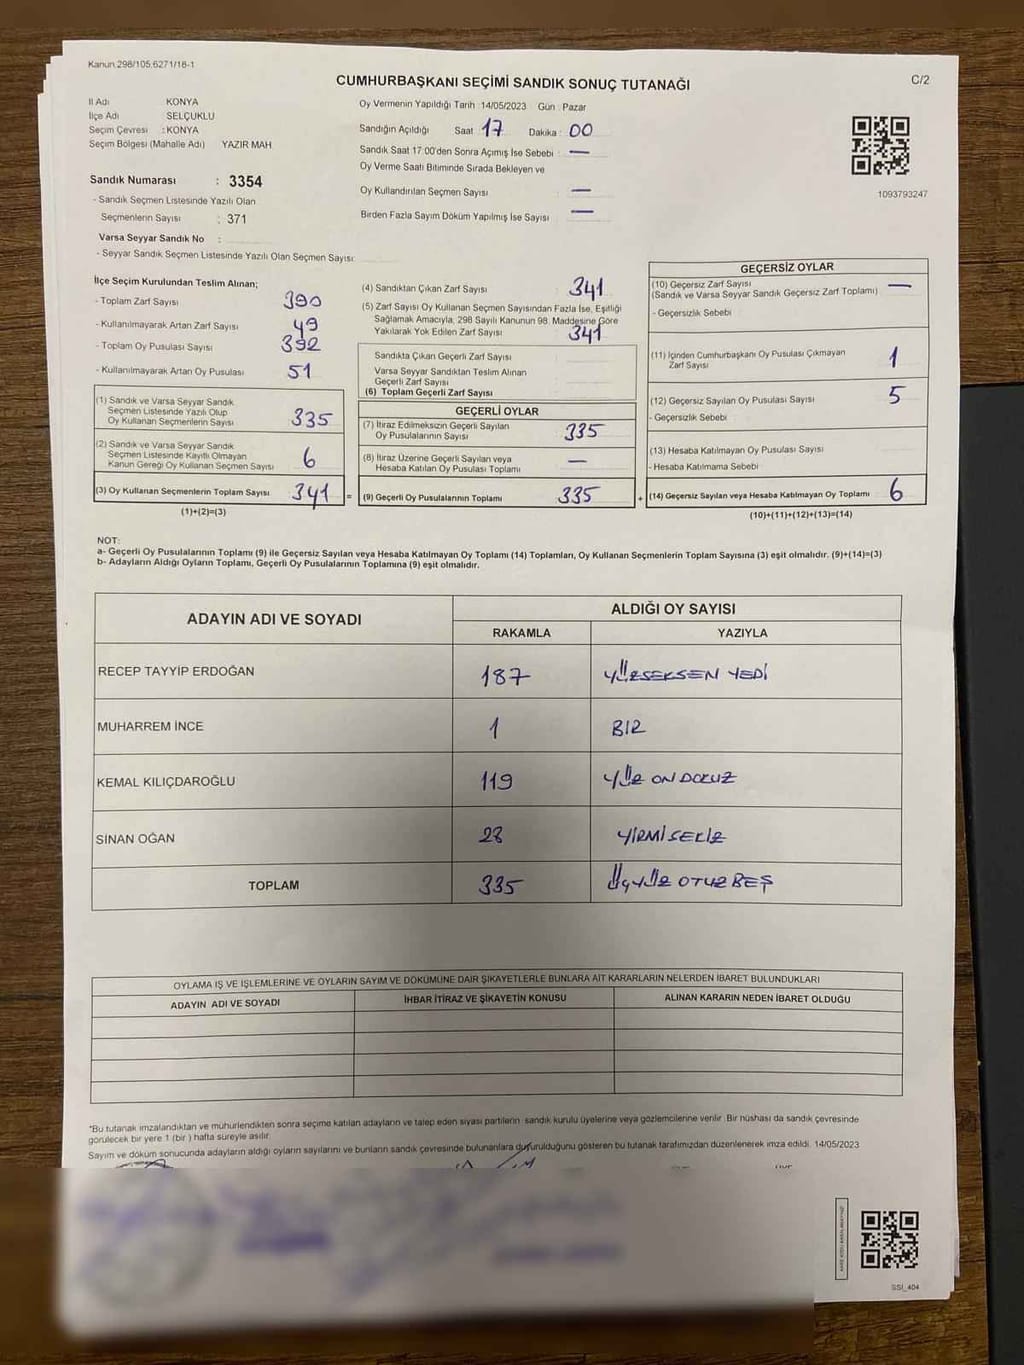 Kanun 298/105.6271/18-1
CUMHURBAŞKANI SEÇİMİ SANDIK SONUÇ TUTANAĞI
C/2
İl Adı KONYA
İlçe Adı SELÇUKLU
Seçim Çevresi : KONYA
Seçim Bölgesi (Mahalle Adı) YAZIR MAH
Oy Vermenin Yapıldığı Tarih :14/05/2023 Gün : Pazar
Sandığın Açıldığı Saat 17 Dakika : 00
Sandık Saat 17:00'den Sonra Açımış İse Sebebi : —
Oy Verme Saati Bitiminde Sırada Bekleyen ve
Oy Kullandırılan Seçmen Sayısı —
Birden Fazla Sayım Döküm Yapılmış İse Sayısı —
1093793247
Sandık Numarası : 3354
- Sandık Seçmen Listesinde Yazılı Olan
Seçmenlerin Sayısı : 371
Varsa Seyyar Sandık No :
- Seyyar Sandık Seçmen Listesinde Yazılı Olan Seçmen Sayısı:
İlçe Seçim Kurulundan Teslim Alınan;
- Toplam Zarf Sayısı 390
- Kullanılmayarak Artan Zarf Sayısı 49
- Toplam Oy Pusulası Sayısı 392
- Kullanılmayarak Artan Oy Pusulası 51
(1) Sandık ve Varsa Seyyar Sandık
Seçmen Listesinde Yazılı Olup
Oy Kullanan Seçmenlerin Sayısı 335
(2) Sandık ve Varsa Seyyar Sandık
Seçmen Listesinde Kayıtlı Olmayan
Kanun Gereği Oy Kullanan Seçmen Sayısı 6
(3) Oy Kullanan Seçmenlerin Toplam Sayısı 341 =
(1)+(2)=(3)
(4) Sandıktan Çıkan Zarf Sayısı 341
(5) Zarf Sayısı Oy Kullanan Seçmen Sayısından Fazla İse, Eşitliği
Sağlamak Amacıyla, 298 Sayılı Kanunun 98. Maddesine Göre
Yakılarak Yok Edilen Zarf Sayısı 341
Sandıkta Çıkan Geçerli Zarf Sayısı
Varsa Seyyar Sandıktan Teslim Alınan
Geçerli Zarf Sayısı
(6) Toplam Geçerli Zarf Sayısı
GEÇERLİ OYLAR
(7) İtiraz Edilmeksizin Geçerli Sayılan
Oy Pusulalarının Sayısı 335
(8) İtiraz Üzerine Geçerli Sayılan veya
Hesaba Katılan Oy Pusulası Toplamı —
(9) Geçerli Oy Pusulalarının Toplamı 335 +
GEÇERSİZ OYLAR
(10) Geçersiz Zarf Sayısı —
(Sandık ve Varsa Seyyar Sandık Geçersiz Zarf Toplamı)
- Geçersizlik Sebebi
(11) İçinden Cumhurbaşkanı Oy Pusulası Çıkmayan
Zarf Sayısı 1
(12) Geçersiz Sayılan Oy Pusulası Sayısı 5
- Geçersizlik Sebebi
(13) Hesaba Katılmayan Oy Pusulası Sayısı
- Hesaba Katılmama Sebebi
(14) Geçersiz Sayılan veya Hesaba Katılmayan Oy Toplamı 6
(10)+(11)+(12)+(13)=(14)
NOT:
a- Geçerli Oy Pusulalarının Toplamı (9) ile Geçersiz Sayılan veya Hesaba Katılmayan Oy Toplamı (14) Toplamları, Oy Kullanan Seçmenlerin Toplam Sayısına (3) eşit olmalıdır. (9)+(14)=(3)
b- Adayların Aldığı Oyların Toplamı, Geçerli Oy Pusulalarının Toplamına (9) eşit olmalıdır.
ADAYIN ADI VE SOYADI ALDIĞI OY SAYISI
RAKAMLA YAZIYLA
RECEP TAYYİP ERDOĞAN 187 YÜZSEKSEN YEDİ
MUHARREM İNCE 1 BİR
KEMAL KILIÇDAROĞLU 119 YÜZ ON DOKUZ
SİNAN OĞAN 28 YİRMİ SEKİZ
TOPLAM 335 ÜÇYÜZ OTUZ BEŞ
OYLAMA İŞ VE İŞLEMLERİNE VE OYLARIN SAYIM VE DÖKÜMÜNE DAİR ŞİKAYETLERLE BUNLARA AİT KARARLARIN NELERDEN İBARET BULUNDUKLARI
ADAYIN ADI VE SOYADI İHBAR İTİRAZ VE ŞİKAYETİN KONUSU ALINAN KARARIN NEDEN İBARET OLDUĞU
*Bu tutanak imzalandıktan ve mühürlendikten sonra seçime katılan adayların ve talep eden siyasi partilerin sandık kurulu üyelerine veya gözlemcilerine verilir. Bir nüshası da sandık çevresinde
görülecek bir yere 1 (bir ) hafta süreyle asılır.
Sayım ve döküm sonucunda adayların aldığı oyların sayılarını ve bunların sandık çevresinde bulunanlara duyurulduğunu gösteren bu tutanak tarafımızdan düzenlenerek imza edildi. 14/05/2023
SSI_404